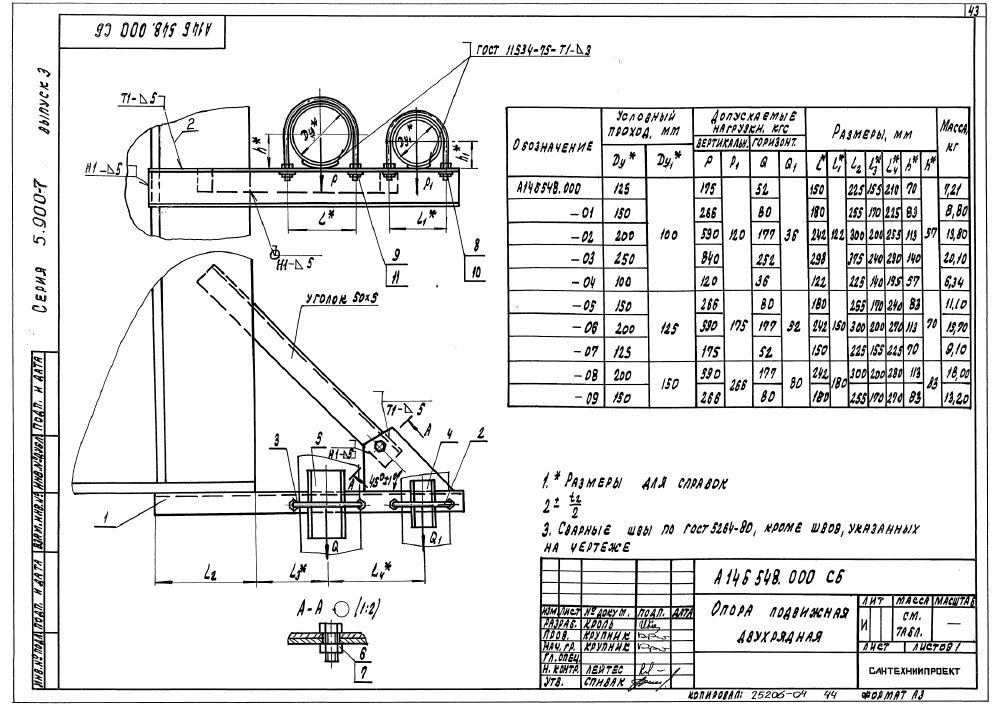 43
А14Б 548. 000 СБ
Серия 5.900-7 выпуск 3
ГОСТ 11534-75-Т1-⊿3
Т1-⊿5
2
Н1-⊿5
Dy*
Dy₁*
h*
h₁*
P
P₁
L*
L₁*
Н1-⊿5
9
11
8
10
Уголок 50х5
Т1-⊿5
А
Н1-⊿5
3
5
4
2
45°±1°
А
1
Q
Q₁
L₂
L₃*
L₄*
А-А (1:2)
6
7
Обозначение | Условный проход, мм | Допускаемые нагрузки, кгс | Размеры, мм | Масса, кг
Вертикальн. | Горизонт.
Dy* | Dy₁* | P | P₁ | Q | Q₁ | L* | L₁* | L₂ | L₃* | L₄* | h* | h*
А14Б548.000 | 125 | 100 | 175 | 120 | 52 | 36 | 150 | 122 | 225 | 155 | 210 | 70 | 57 | 7,21
-01 | 150 | 266 | 80 | 180 | 255 | 170 | 225 | 83 | 8,80
-02 | 200 | 590 | 177 | 242 | 300 | 200 | 255 | 113 | 13,80
-03 | 250 | 840 | 252 | 298 | 375 | 240 | 290 | 140 | 20,10
-04 | 100 | 120 | 36 | 122 | 225 | 140 | 195 | 57 | 6,34
-05 | 150 | 125 | 266 | 175 | 80 | 52 | 180 | 150 | 255 | 170 | 240 | 83 | 70 | 11,10
-06 | 200 | 590 | 177 | 242 | 300 | 200 | 270 | 113 | 15,70
-07 | 125 | 175 | 52 | 150 | 225 | 155 | 225 | 70 | 9,10
-08 | 200 | 150 | 590 | 266 | 177 | 80 | 242 | 180 | 300 | 200 | 280 | 113 | 83 | 18,00
-09 | 150 | 266 | 80 | 180 | 255 | 170 | 270 | 83 | 13,20
1. * Размеры для справок
2 ± t₂/2
3. Сварные швы по ГОСТ 5264-80, кроме швов, указанных
на чертеже
А14Б 548.000 СБ
Опора подвижная
двухрядная
Лит | Масса | Масштаб
И | См. табл. | —
Лист | Листов 1
Сантехниипроект
Изм | Лист | № докум. | Подп. | Дата
Разраб. Кроль
Пров. Крупник
Нач. гр. Крупник
Гл. спец.
Н. контр. Лейтес
Утв. Спивак
Инв. № подл. | Подп. и дата | Взам. инв. № | Инв. № дубл. | Подп. и дата
Копировал: 25206-04 44 Формат А3